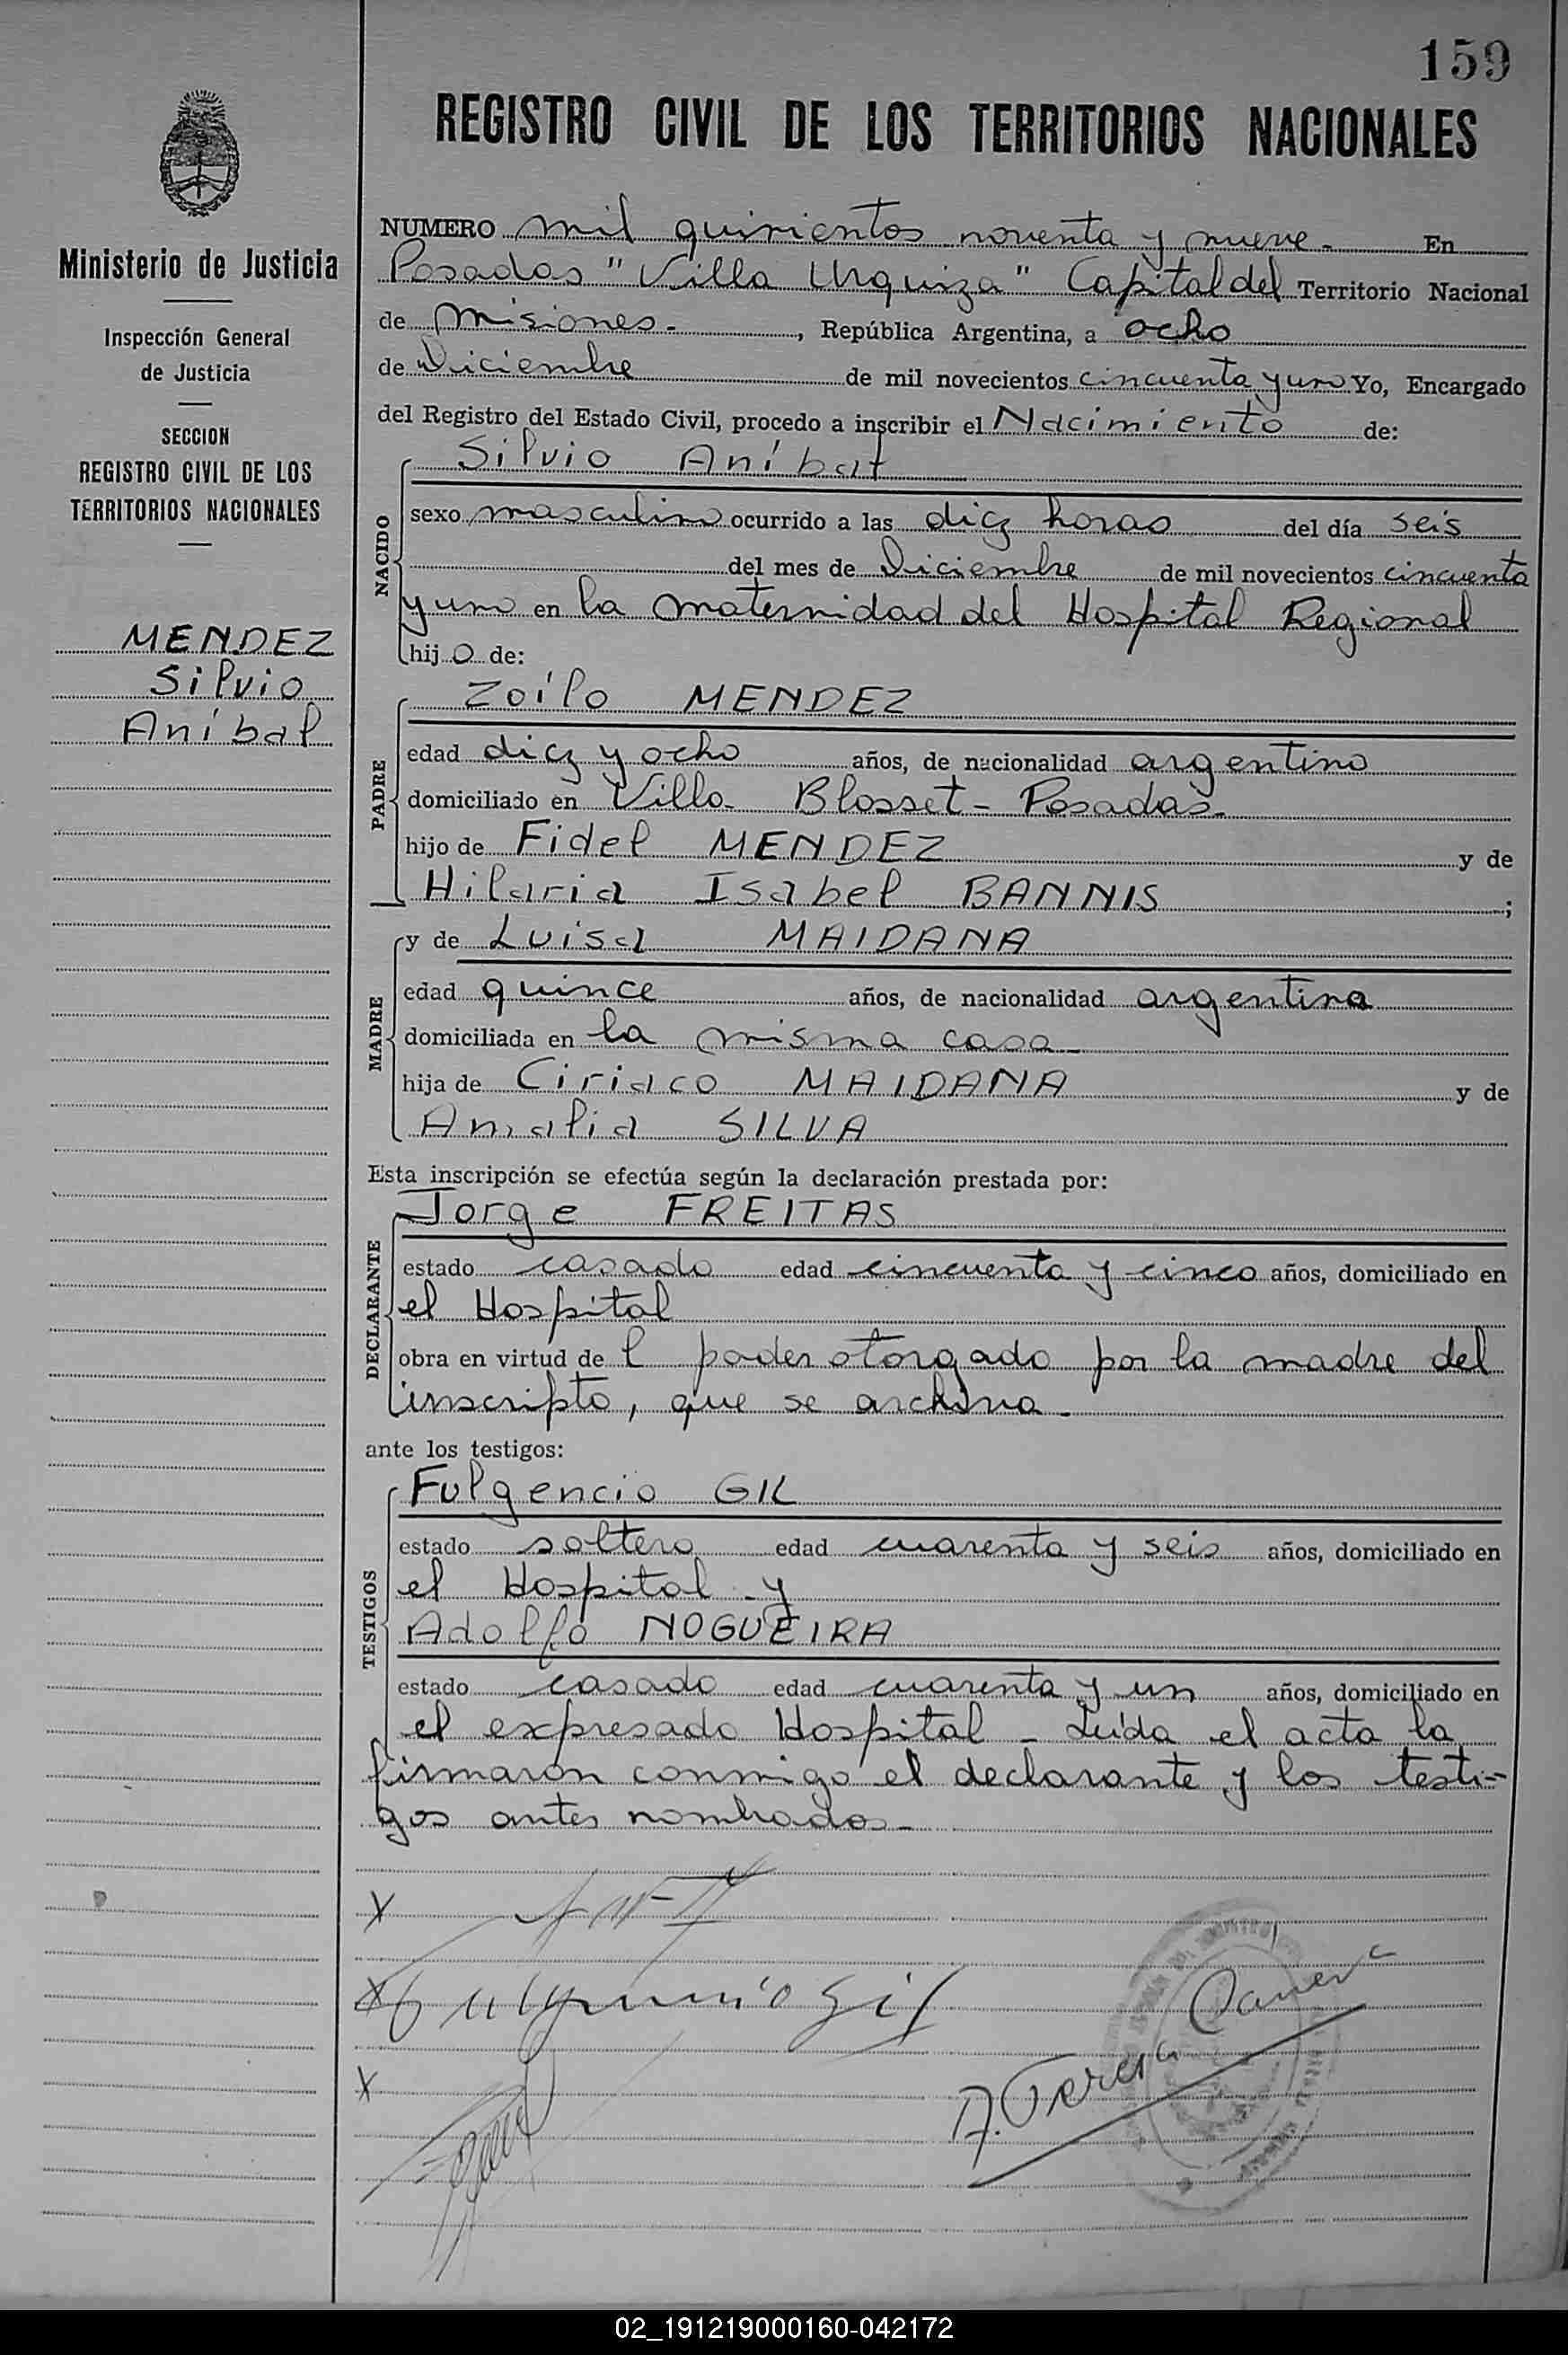 159
REGISTRO CIVIL DE LOS TERRITORIOS NACIONALES
Ministerio de Justicia
Inspección General
de Justicia
SECCION
REGISTRO CIVIL DE LOS
TERRITORIOS NACIONALES
MENDEZ
Silvio
Aníbal
NUMERO mil quinientos noventa y nueve- En
Posadas "Villa Urquiza" Capital del Territorio Nacional
de Misiones-, República Argentina, a ocho
de Diciembre de mil novecientos cincuenta y uno Yo, Encargado
del Registro del Estado Civil, procedo a inscribir el Nacimiento de:
NACIDO
Silvio Aníbal
sexo masculino ocurrido a las diez horas del día seis
del mes de Diciembre de mil novecientos cincuenta
y uno en la maternidad del Hospital Regional
hijo de:
PADRE
Zoilo MENDEZ
edad diez y ocho años, de nacionalidad argentino
domiciliado en Villa Blosset- Posadas-
hijo de Fidel MENDEZ y de
Hilaria Isabel BANNIS ;
MADRE
y de Luisa MAIDANA
edad quince años, de nacionalidad argentina
domiciliada en la misma casa-
hija de Ciriaco MAIDANA y de
Amalia SILVA
Esta inscripción se efectúa según la declaración prestada por:
DECLARANTE
Jorge FREITAS
estado casado edad cincuenta y cinco años, domiciliado en
el Hospital
obra en virtud de l poder otorgado por la madre del
inscripto, que se archiva-
ante los testigos:
TESTIGOS
Fulgencio GIL
estado soltero edad cuarenta y seis años, domiciliado en
el Hospital y
Adolfo NOGUEIRA
estado casado edad cuarenta y un años, domiciliado en
el expresado Hospital - Leída el acta la
firmaron conmigo el declarante y los testi-
gos antes nombrados-
X
X Fulgencio Gil
X
02_191219000160-042172